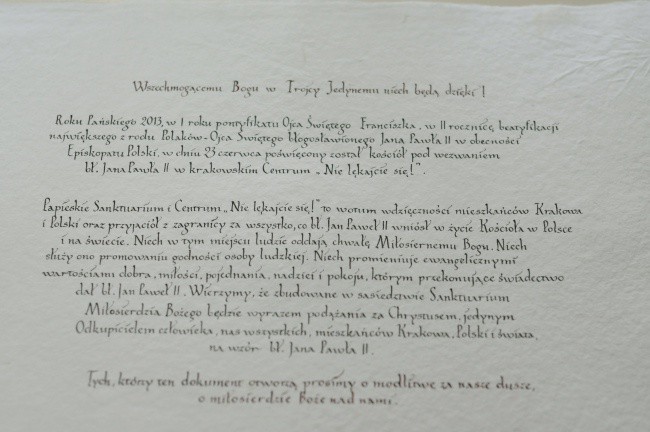 Wszechmogącemu Bogu w Trójcy Jedynemu niech będą dzięki!
Roku Pańskiego 2013, w I roku pontyfikatu Ojca Świętego Franciszka, w II rocznicę beatyfikacji
największego z rodu Polaków - Ojca Świętego błogosławionego Jana Pawła II w obecności
Episkopatu Polski, w dniu 23 czerwca poświęcony został kościół pod wezwaniem
bł. Jana Pawła II w krakowskim Centrum „Nie lękajcie się!”.
Papieskie Sanktuarium i Centrum „Nie lękajcie się!” to wotum wdzięczności mieszkańców Krakowa
i Polski oraz przyjaciół z zagranicy za wszystko, co bł. Jan Paweł II wniósł w życie Kościoła w Polsce
i na świecie. Niech w tym miejscu ludzie oddają chwałę Miłosiernemu Bogu. Niech
służy ono promowaniu godności osoby ludzkiej. Niech promieniuje ewangelicznymi
wartościami dobra, miłości, pojednania, nadziei i pokoju, którym przekonujące świadectwo
dał bł. Jan Paweł II. Wierzymy, że zbudowane w sąsiedztwie Sanktuarium
Miłosierdzia Bożego będzie wyrazem podążania za Chrystusem, jedynym
Odkupicielem człowieka, nas wszystkich, mieszkańców Krakowa, Polski i świata,
na wzór bł. Jana Pawła II.
Tych, którzy ten dokument otworzą prosimy o modlitwę za nasze dusze,
o miłosierdzie Boże nad nami.